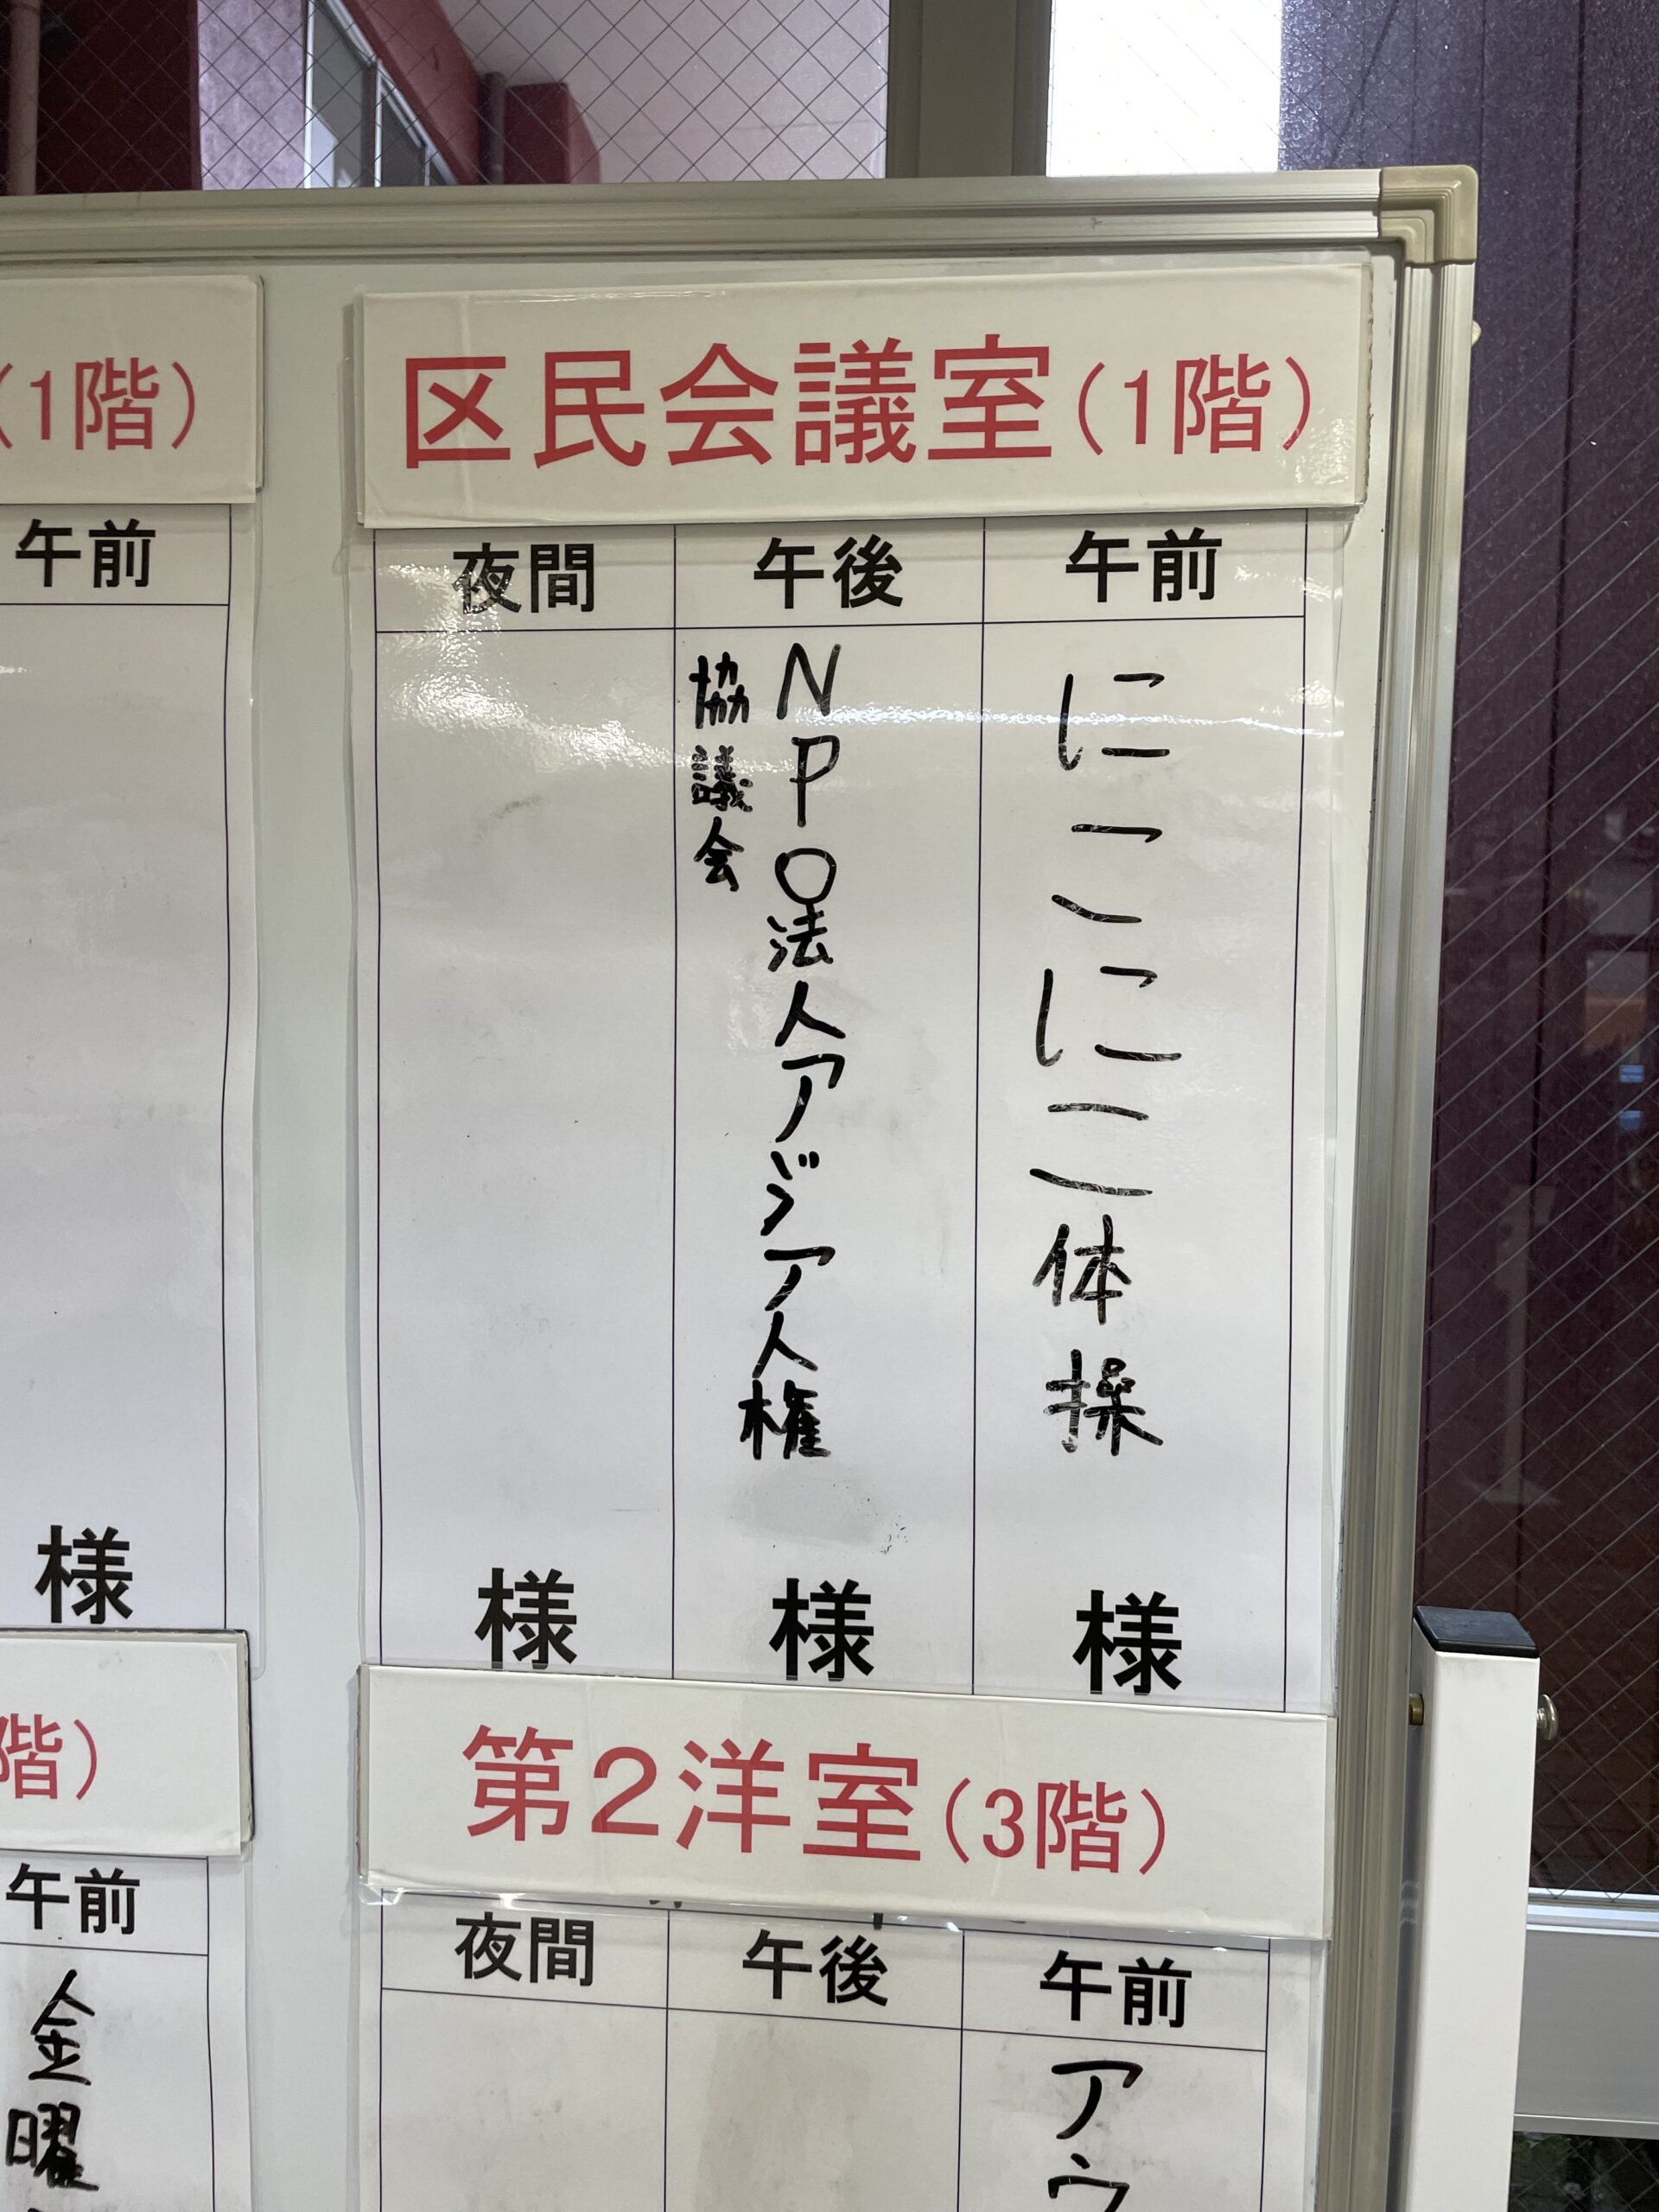 (1階)
午前
様
階)
午前
金曜
区民会議室(1階)
午前
にこにこ体操
様
午後
NPO法人アジア人権
協議会
様
夜間
様
第2洋室(3階)
午前
アウ
午後
夜間